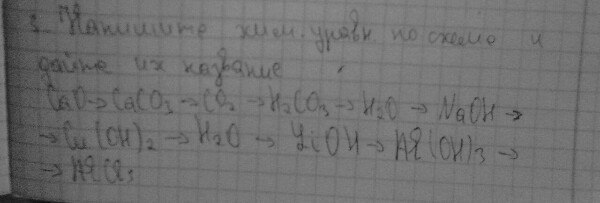 3. Напишите хим. уравн по схеме и
дайте их название
CaO → CaCO₃ → CO₂ → H₂CO₃ → H₂O → NaOH →
→ Cu(OH)₂ → H₂O → LiOH → Al(OH)₃ →
→ AlCl₃